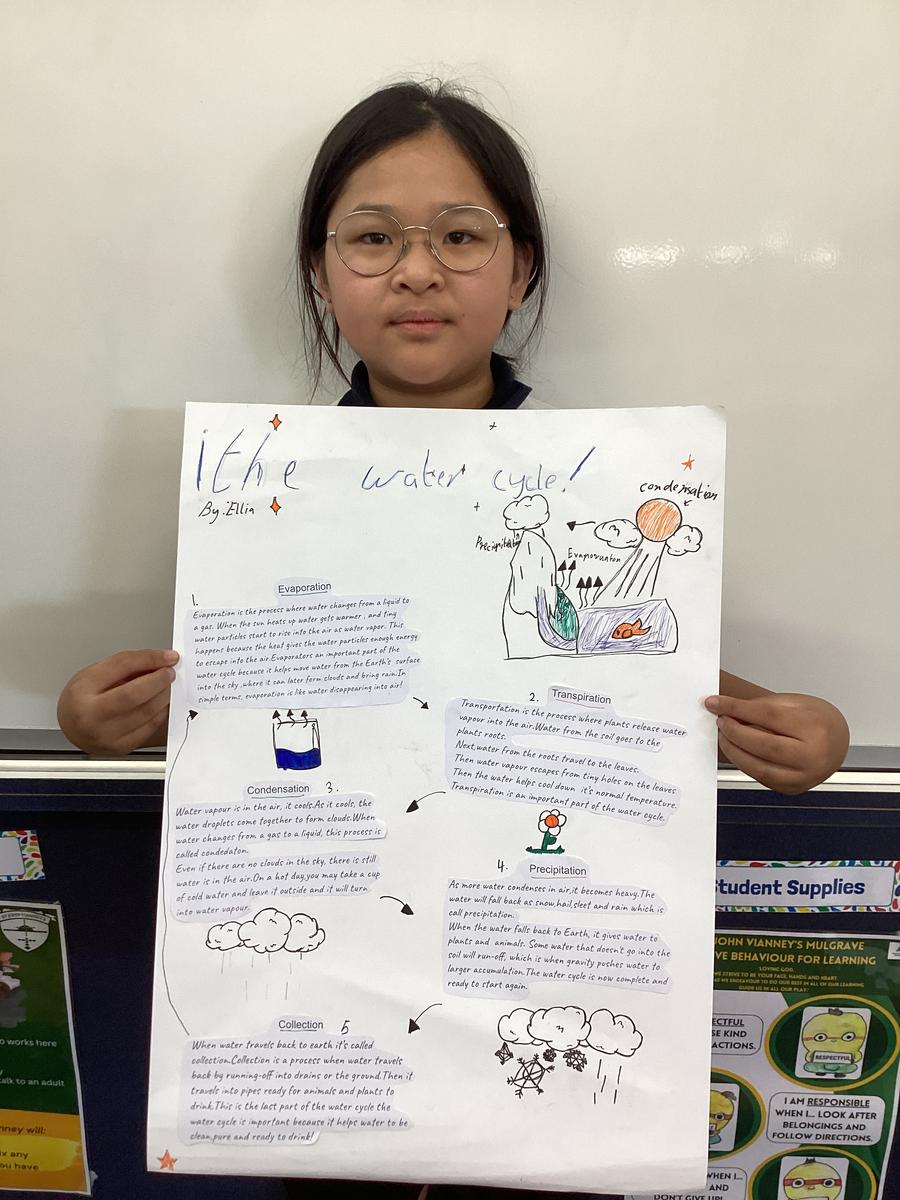 the water cycle!
By: Ellin
condensation
Precipitation
Evaporation
1.
Evaporation
Evaporation is the process where water changes from a liquid to
a gas. When the sun heats up water gets warmer , and tiny
water particles start to rise into the air as water vapor. This
happens because the heat gives the water particles enough energy
to escape into the air.Evaporators an important part of the
water cycle because it helps move water from the Earth's surface
into the sky ,where it can later form clouds and bring rain.In
simple terms, evaporation is like water disappearing into air!
2. Transpiration
Transportation is the process where plants release water
vapour into the air.Water from the soil goes to the
plants roots.
Next,water from the roots travel to the leaves.
Then water vapour escapes from tiny holes on the leaves
Then the water helps cool down it's normal temperature.
Transpiration is an important part of the water cycle.
Condensation 3.
Water vapour is in the air, it cools.As it cools, the
water droplets come together to form clouds.When
water changes from a gas to a liquid, this process is
called condedaton.
Even if there are no clouds in the sky, there is still
water is in the air.On a hot day,you may take a cup
of cold water and leave it outside and it will turn
into water vapour.
4. Precipitation
As more water condenses in air,it becomes heavy.The
water will fall back as snow,hail,sleet and rain which is
call precipitation.
When the water falls back to Earth, it gives water to
plants and animals. Some water that doesn't go into the
soil will run-off, which is when gravity pushes water to
larger accumulation.The water cycle is now complete and
ready to start again.
Collection 5
When water travels back to earth it's called
collection.Collection is a process when water travels
back by running-off into drains or the ground.Then it
travels into pipes ready for animals and plants to
drink.This is the last part of the water cycle the
water cycle is important because it helps water to be
clean,pure and ready to drink!
Student Supplies
JOHN VIANNEY'S MULGRAVE
VE BEHAVIOUR FOR LEARNING
'LOVING GOD,
WE STRIVE TO BE YOUR FACE, HANDS AND HEART
AS WE ENDEAVOUR TO DO OUR BEST IN ALL OF OUR LEARNING
GUIDE US IN ALL OUR PLAY.'
ECTFUL
SE KIND
ACTIONS.
RESPECTFUL
I AM RESPONSIBLE
WHEN I... LOOK AFTER
BELONGINGS AND
FOLLOW DIRECTIONS.
WHEN I...
AND
DON'T GIVE UP!
o works here
talk to an adult
nney will:
ix any
ou have